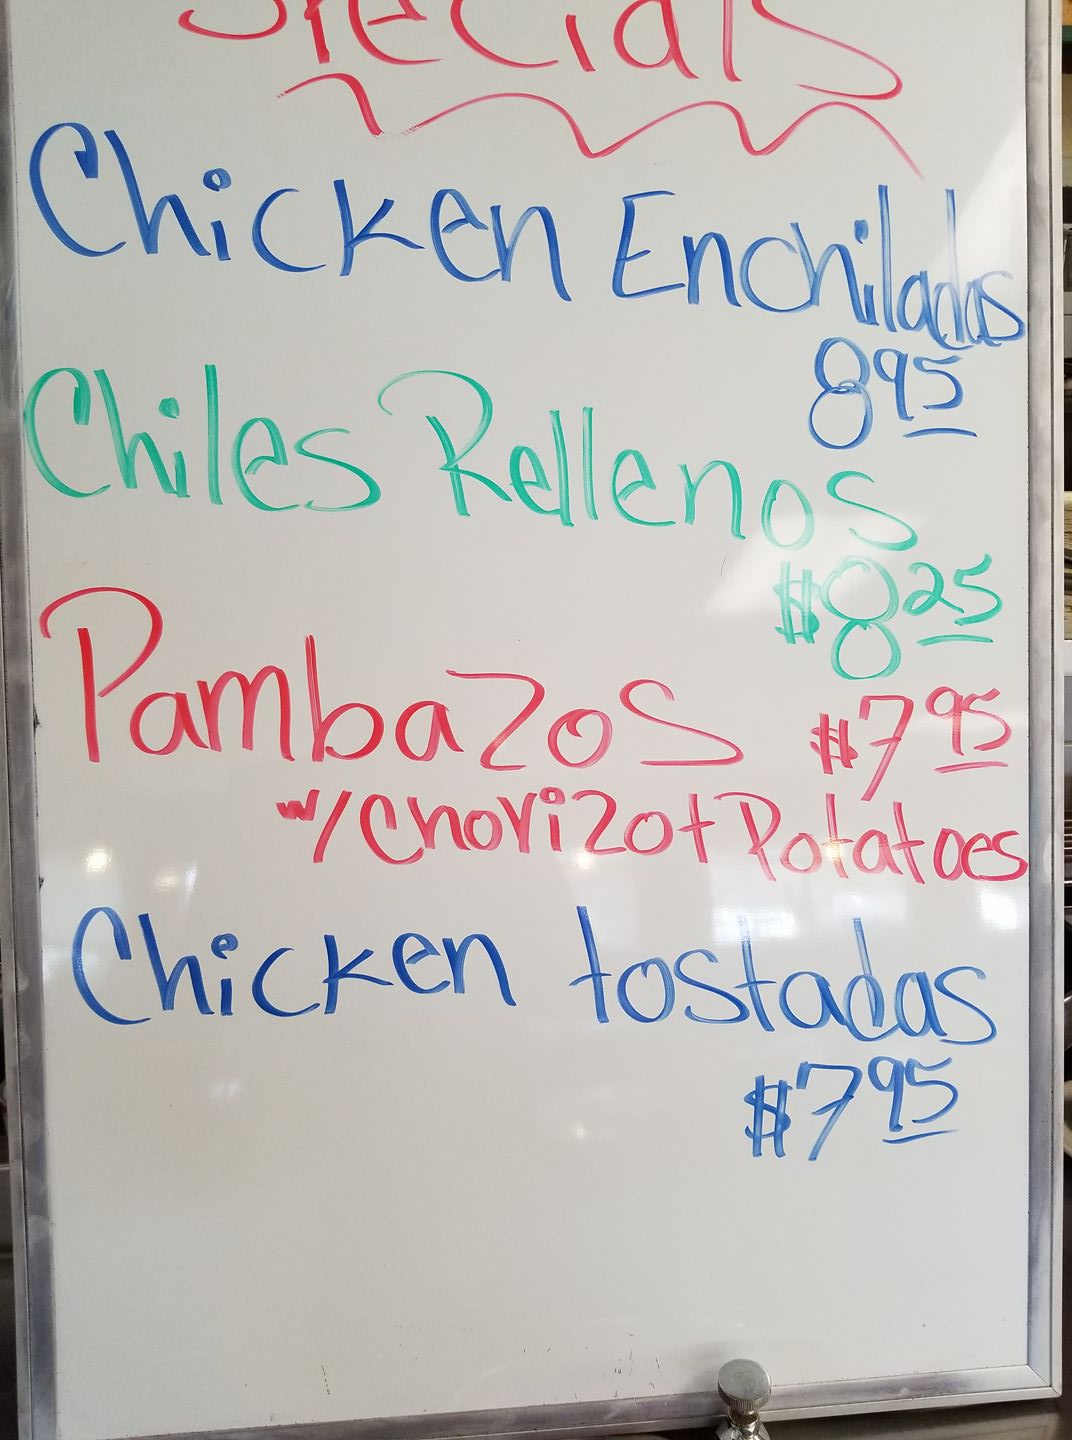 Specials
Chicken Enchiladas
8 95
Chiles Rellenos
$8 25
Pambazos $7 95
w/ Chorizo + Potatoes
Chicken tostadas
$7 95